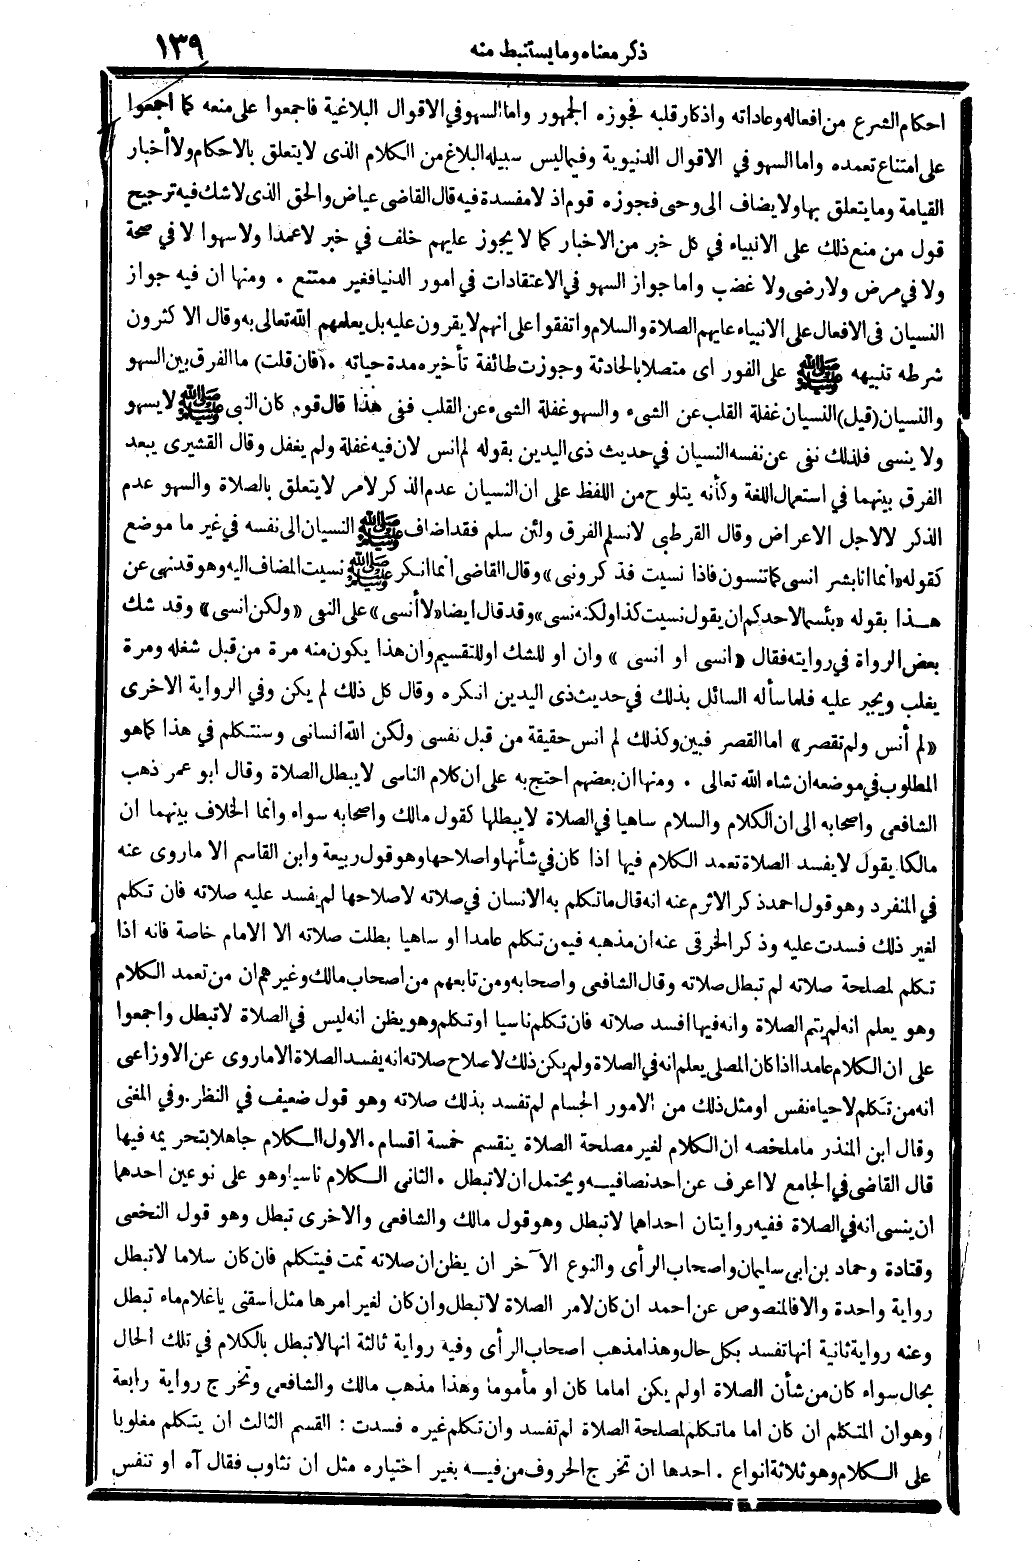 ذكر معناه وما يستنبط منه ١٣٩
احكام الشرع من افعاله وعاداته واذكار قلبه فجوزه الجمهور واما السهو في الاقوال البلاغية فاجمعوا على منعه كما اجمعوا
على امتناع تعمده واما السهو في الاقوال الدنيوية وفيما ليس سبيله البلاغ من الكلام الذى لا يتعلق بالاحكام ولا أخبار
القيامة وما يتعلق بها ولا يضاف الى وحى فجوزه قوم اذ لا مفسدة فيه قال القاضى عياض والحق الذى لا شك فيه ترجيح
قول من منع ذلك على الانبياء في كل خبر من الاخبار كما لا يجوز عليهم خلف في خبر لا عمدا ولا سهوا لا في صحة
ولا في مرض ولا رضى ولا غضب واما جواز السهو في الاعتقادات في امور الدنيا فغير ممتنع . ومنها ان فيه جواز
النسيان فى الافعال على الانبياء عليهم الصلاة والسلام واتفقوا على انهم لا يقرون عليه بل يعلمهم الله تعالى به وقال الاكثرون
شرطه تنبيهه ﷺ على الفور اى متصلا بالحادثة وجوزت طائفة تأخيره مدة حياته . (فان قلت) ما الفرق بين السهو
والنسيان (قيل) النسيان غفلة القلب عن الشىء والسهو غفلة الشىء عن القلب ففى هذا قال قوم كان النبى ﷺ لا يسهو
ولا ينسى فلذلك نفى عن نفسه النسيان في حديث ذى اليدين بقوله لم انس لان فيه غفلة ولم يغفل وقال القشيرى يبعد
الفرق بينهما في استعمال اللغة وكأنه يتلوح من اللفظ على ان النسيان عدم الذكر لامر لا يتعلق بالصلاة والسهو عدم
الذكر لا لاجل الاعراض وقال القرطبى لا نسلم الفرق ولئن سلم فقد اضاف ﷺ النسيان الى نفسه في غير ما موضع
كقوله «انما انا بشر انسى كما تنسون فاذا نسيت فذكرونى» وقال القاضى انما انكر ﷺ نسيت المضاف اليه وهو قد نهى عن
هذا بقوله «بئسما لاحدكم ان يقول نسيت كذا ولكنه نسى» وقد قال ايضا «لا أنسى» على النفى «ولكن انسى» وقد شك
بعض الرواة في روايته فقال «انسى او انسى» وان او للشك او للتقسيم وان هذا يكون منه مرة من قبل شغله ومرة
يغلب ويجبر عليه فلما سأله السائل بذلك في حديث ذى اليدين انكره وقال كل ذلك لم يكن وفي الرواية الاخرى
«لم أنس ولم تقصر» اما القصر فبين وكذلك لم انس حقيقة من قبل نفسى ولكن الله انسانى وسنتكلم في هذا كما هو
المطلوب في موضعه ان شاء الله تعالى . ومنها ان بعضهم احتج به على ان كلام الناسى لا يبطل الصلاة وقال ابو عمر ذهب
الشافعى واصحابه الى ان الكلام والسلام ساهيا في الصلاة لا يبطلها كقول مالك واصحابه سواء وانما الخلاف بينهما ان
مالكا يقول لا يفسد الصلاة تعمد الكلام فيها اذا كان في شأنها واصلاحها وهو قول ربيعة وابن القاسم الا ما روى عنه
في المنفرد وهو قول احمد ذكر الاثرم عنه انه قال ما تكلم به الانسان في صلاته لاصلاحها لم يفسد عليه صلاته فان تكلم
لغير ذلك فسدت عليه وذكر الخرقى عنه ان مذهبه فيمن تكلم عامدا او ساهيا بطلت صلاته الا الامام خاصة فانه اذا
تكلم لمصلحة صلاته لم تبطل صلاته وقال الشافعى واصحابه ومن تابعهم من اصحاب مالك وغيرهم ان من تعمد الكلام
وهو يعلم انه لم يتم الصلاة وانه فيها افسد صلاته فان تكلم ناسيا او تكلم وهو يظن انه ليس في الصلاة لا تبطل واجمعوا
على ان الكلام عامدا اذا كان المصلى يعلم انه في الصلاة ولم يكن ذلك لاصلاح صلاته انه يفسد الصلاة الا ما روى عن الاوزاعى
انه من تكلم لاحياء نفس او مثل ذلك من الامور الجسام لم تفسد بذلك صلاته وهو قول ضعيف في النظر . وفي المغنى
وقال ابن المنذر ما ملخصه ان الكلام لغير مصلحة الصلاة ينقسم خمسة اقسام . الاول الكلام جاهلا بتحريمه فيها
قال القاضى في الجامع لا اعرف عن احد نصا فيه ويحتمل ان لا تبطل . الثانى الكلام ناسيا وهو على نوعين احدهما
ان ينسى انه في الصلاة ففيه روايتان احداهما لا تبطل وهو قول مالك والشافعى والاخرى تبطل وهو قول النخعى
وقتادة وحماد بن ابى سليمان واصحاب الرأى والنوع الآخر ان يظن ان صلاته تمت فيتكلم فان كان سلاما لا تبطل
رواية واحدة والا فالمنصوص عن احمد ان كان لامر الصلاة لا تبطل وان كان لغير امرها مثل اسقنى يا غلام ماء تبطل
وعنه رواية ثانية انها تفسد بكل حال وهذا مذهب اصحاب الرأى وفيه رواية ثالثة انها لا تبطل بالكلام في تلك الحال
بحال سواء كان من شأن الصلاة او لم يكن اماما كان او مأموما وهذا مذهب مالك والشافعى وتخرج رواية رابعة
وهو ان المتكلم ان كان اماما تكلم لمصلحة الصلاة لم تفسد وان تكلم غيره فسدت : القسم الثالث ان يتكلم مغلوبا
على الكلام وهو ثلاثة انواع . احدها ان تخرج الحروف من فيه بغير اختياره مثل ان تثاوب فقال آه او تنفس